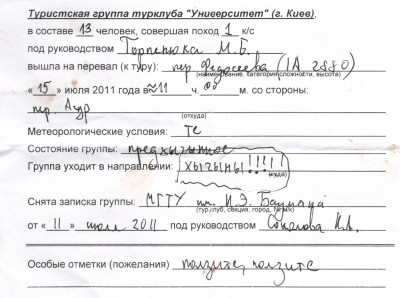 Туристская группа турклуба "Университет" (г. Киев),
в составе 13 человек, совершая поход 1 к/с
под руководством М.В.
вышла на перевал (к туру): пер. Федосеева (1А 2880)
(наименование, категория сложности, высота)
« 15 » июля 2011 года в ≈11 ч. 00 м. со стороны:
пер. Ахур
(откуда)
Метеорологические условия: те
Состояние группы: предхычынное
Группа уходит в направлении: ХЫЧЫНЫ!!!!!
(куда)
Снята записка группы: МГТУ им. Н.Э. Баумана
(тур.клуб, секция, город, №м/к)
от « 11 » июле 2011 под руководством Соколова И.А.
Особые отметки (пожелания) ползите, ползите